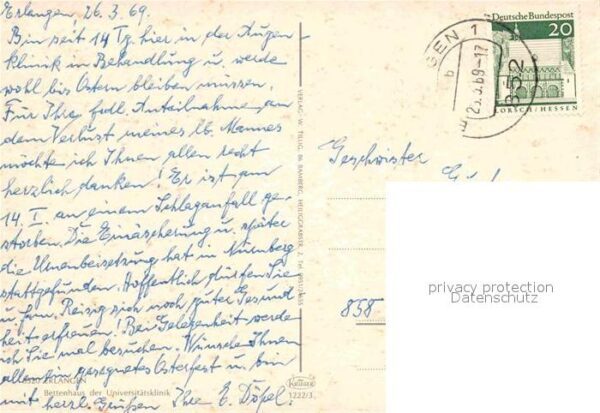 Erlangen, 26.3.69.
Bin seit 14 Tg. hier in der Augen-
klinik in Behandlung u. werde
wohl bis Ostern bleiben müssen.
Für Ihre frdl. Anteilnahme am
dem Verlust meines lb. Mannes
möchte ich Ihnen allen recht
herzlich danken! Er ist am
14. I. an einem Schlaganfall ge-
storben. Die Einäscherung u. später
die Urnenbeisetzung hat in Nürnberg
stattgefunden. Hoffentlich dürfen Sie
u. Fam. Reisig sich noch guter Gesund
heit erfreuen! Bei Gelegenheit werde
ich Sie mal besuchen. Wünsche Ihnen
allen ein gesegnetes Osterfest u. bin
mit herzl. Grüßen Ihre E. Döpel.
8520 ERLANGEN
Bettenhaus der Universitätsklinik
VERLAG W. TILLIG, 86 BAMBERG, HEILIGGRABSTR. 2, TH.
Krüger
1222/3
Deutsche Bundespost
20
LORSCH/HESSEN
GEN 1
b
852
Geschwister
858
privacy protection
Datenschutz